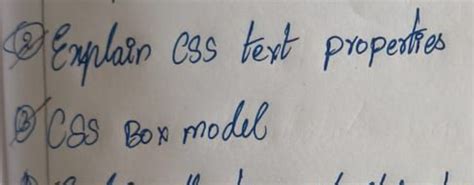 ② Explain CSS text properties
③ CSS Box model